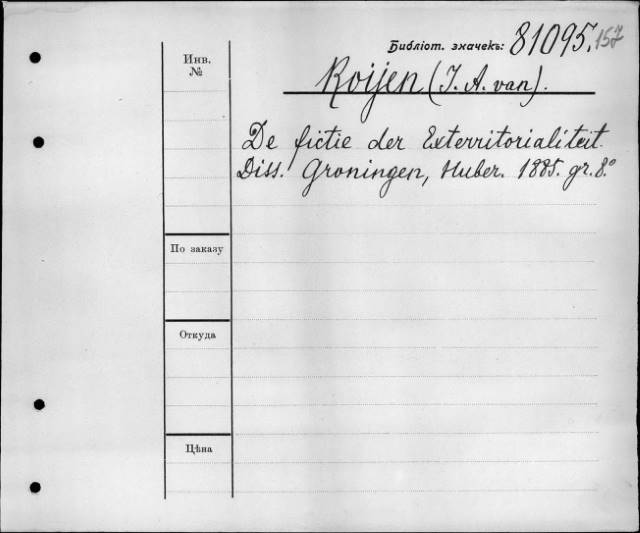 Библіот. значекъ: 81095.157
Инв. №
Roijen (J. A. van).
De fictie der Exterritorialiteit.
Diss. Groningen, Huber. 1885. gr. 8.º
По заказу
Откуда
Цѣна